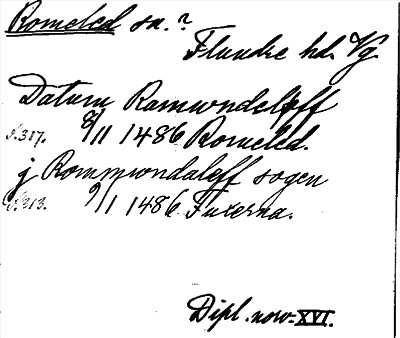 Romeled sn.?
Flundre hd. Vg
Datum Ramundeleff
N.317. 8/11 1486 Romeled.
j Rommundaleff sogen
313. 9/1 1486 Fuxerna.
Dipl. norv. XVI.